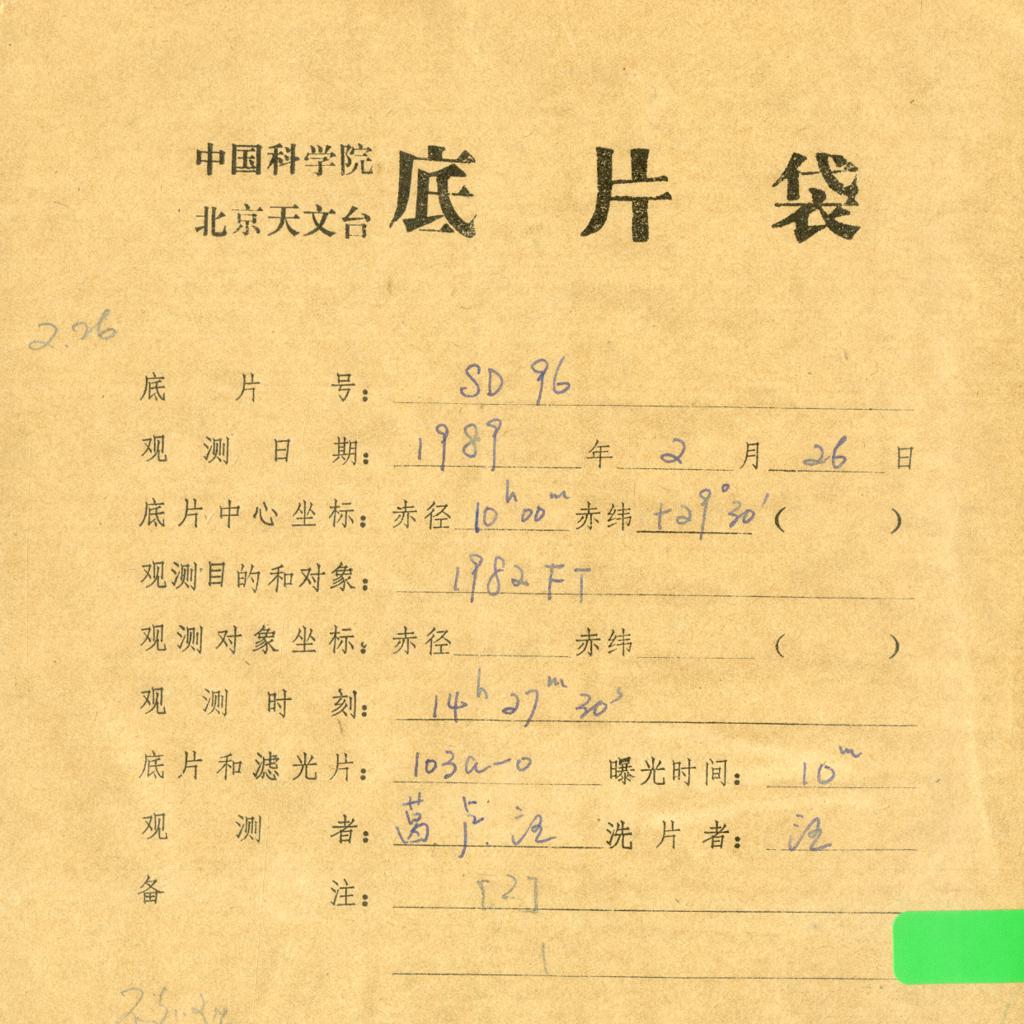 中国科学院
北京天文台
底片袋
2.26
底片号： SD 96
观测日期： 1989 年 2 月 26 日
底片中心坐标： 赤径 10h 00m 赤纬 +29° 30′ （ ）
观测目的和对象： 1982 FT
观测对象坐标： 赤径 赤纬 （ ）
观测时刻： 14h 27m 30s
底片和滤光片： 103a-O 曝光时间： 10m
观测者： 葛. 卢. 汪 洗片者： 汪
备注： [2]